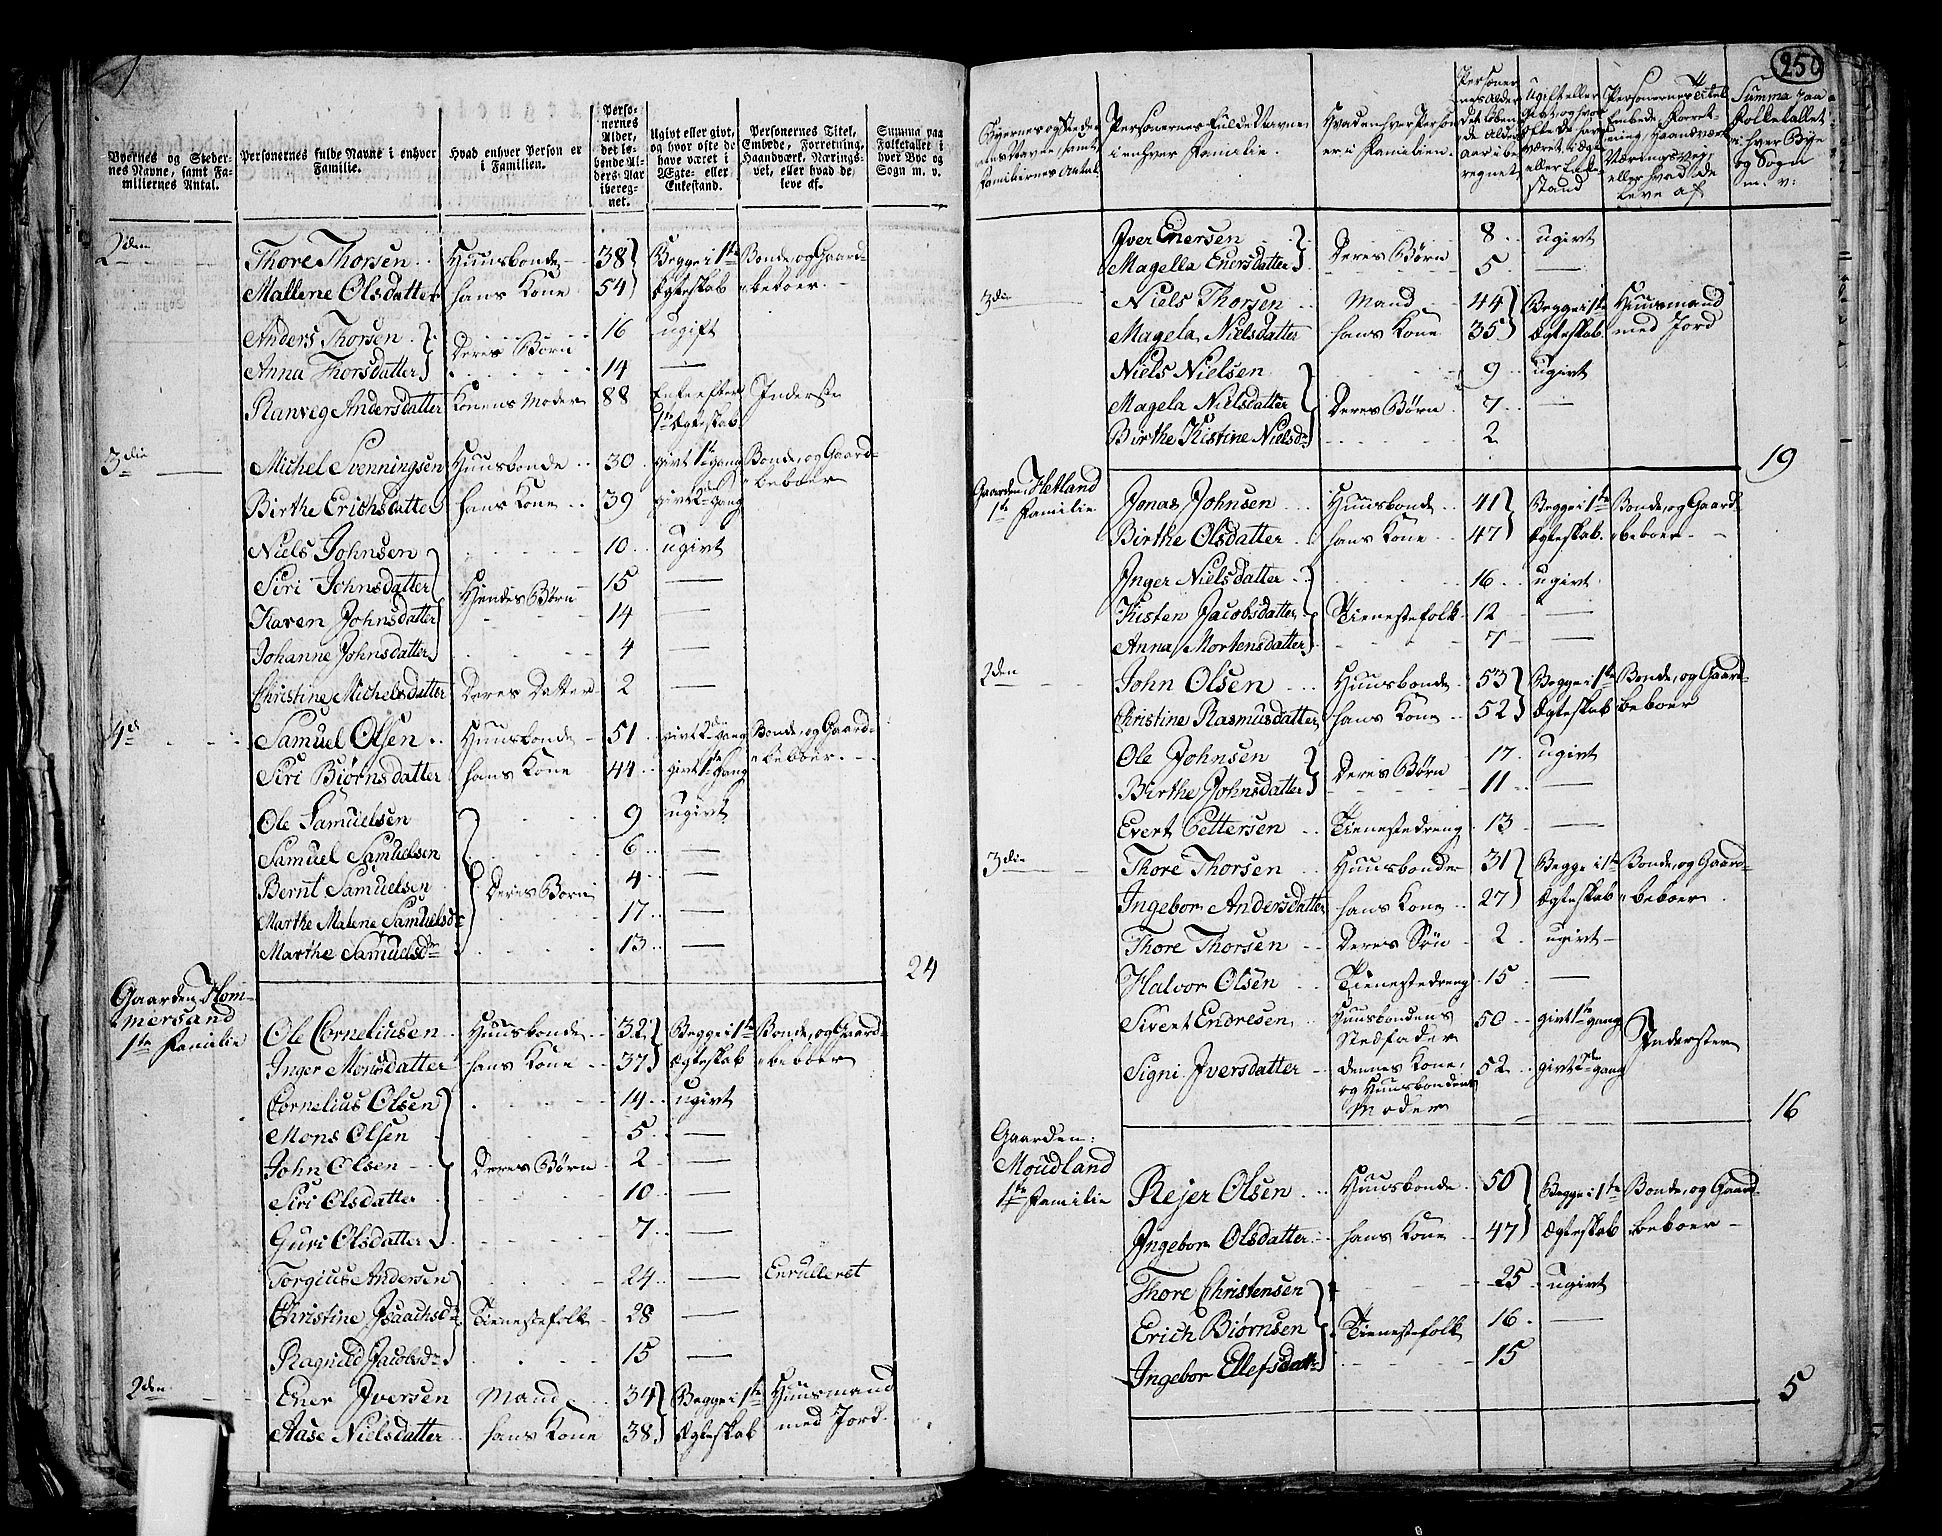 Byernes og Steder-
nes Navne, samt Fa-
miliernes Antal.
Personernes fulde Navne i enhver
Familie.
Hvad enhver Person er
i Familien.
Perso-
nernes
Alder,
det lø-
bende Al-
ders-Aar
ibereg-
net.
Ugivt eller givt,
og hvor ofte de
have været i
Ægte- eller
Enkestand.
Personernes Titel,
Embede, Forretning,
Haandværk, Nærings-
vei, eller hvad de
leve af.
Summa paa
Folketallet i
hver Bye og
Sogn m. v.
2den Thore Thorsen Huusbonde 38 Begge i 1te Bonde, og Gaard-
Mallene Olsdatter hans Kone 54 Ægteskab beboer.
Anders Thorsen 16 ugift
Deres Børn
Anna Thorsdatter 14 —
Ranveg Andersdatter Konens Moder 88 Enke efter Inderste
1te Ægteskab
3die Michel Svenningsen Huusbonde 30 givt 1te gang Bonde, og Gaard-
Birthe Erichsdatter hans Kone 39 givt 2den gang beboer
Niels Johnsen 10 ugivt
Siri Johnsdatter 15 —
Hendes Børn
Karen Johnsdatter 14 —
Johanne Johnsdatter 4 —
Christine Michelsdatter Deres Datter 2 —
4de Samuel Olsen Huusbonde 51 givt 2den gang Bonde, og Gaard-
Siri Biørnsdatter hans Kone 44 givt 1te gang beboer.
Ole Samuelsen 9 ugivt
Samuel Samuelsen 6 —
Bernt Samuelsen Deres Børn 4 —
Marthe Malene Samuelsdr 17 —
Marthe Samuelsdr 13 —
24
Gaarden Hom-
mersand
1te Familie
Ole Corneliusen Huusbonde 32 Begge i 1te Bonde, og Gaard-
Inger Monsdatter hans Kone 37 Ægteskab beboer
Cornelius Olsen 14 ugivt
Mons Olsen 5 —
John Olsen Deres Børn 2 —
Siri Olsdatter 10 —
Guri Olsdatter 7 —
Torgius Andersen 24 — Enrulleret
Christine Isaachsdr Tienestefolk 28 —
Ragnild Jacobsdr 15 —
2den Ener Iversen Mand 34 Begge i 1te Huusmand
Aase Nielsdatter hans Kone 38 Ægteskab med Jord.
250
Byernes og Steder-
nes Navne, samt
Familiernes Antal.
Personernes fulde Navne
i enhver Familie.
Hvad enhver Person
er i Familien.
Personer-
nes Alder
det løben-
de Alders
aar ibe-
regnet
Ugift eller
Givt, og hvor
ofte de have
været i Ægte
eller Enke-
stand
Personernes Titel
Embede Forret-
ning, Haandværk
Næringsvej,
eller hvad de
leve af
Summa paa
Folketallet
i hver Bye
og Sogn
m. v.
Iver Enersen 8 ugivt
Deres Børn
Magella Enersdatter 5 —
3die Niels Thorsen Mand 44 Begge i 1te Huusmand
Magela Nielsdatter hans Kone 35 Ægteskab. med Jord
Niels Nielsen 9 ugivt
Magela Nielsdatter Deres Børn 7 —
Birthe Kistine Nielsdr 2
19
Gaarden Hetland
1te Familie
Jonas Johnsen Huusbonde 41 Begge i 1te Bonde, og Gaard-
Birthe Olsdatter hans Kone 47 Ægteskab. beboer
Inger Nielsdatter 16 ugivt
Kisten Jacobsdatter Tienestefolk 12 —
Anna Mortensdatter 7 —
2den John Olsen Huusbonde 53 Begge i 1te Bonde, og Gaard-
Christine Rasmusdatter hans Kone 52 Ægteskab beboer
Ole Johnsen 17 ugivt
Deres Børn
Birthe Johnsdatter 11 —
Evert Pettersen Tienestedreng 13 —
3die Thore Thorsen Huusbonde 31 Begge i 1te Bonde, og Gaard-
Ingebor Andersdatter hans Kone 27 Ægteskab beboer
Thore Thorsen Deres Søn 2 ugivt
Halvor Olsen Tienestedreng 15 —
Sivert Endresen Huusbondens 50 givt 1te gang
Stedfader
Inderster
Signi Iversdatter dennes Kone, 52 givt 2den gang
og Huusbondens
Moder
16
Gaarden:
Moudland
1te Familie
Rejer Olsen Huusbonde 50 Begge i 1te Bonde, og Gaard-
Ingebor Olsdatter hans Kone 47 Ægteskab beboer
Thore Christensen 25 ugivt
Erich Biørnsen Tienestefolk 16 —
Ingebor Ellefsdatr 15
5